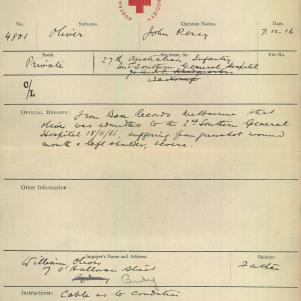 AUSTRA
SOCIETY
No. Surname. Christian Names. Date.
4831 Oliver John Percy 7.12.16
Rank. Regiment, &c. File No.
Private 27th Australian Infantry
2nd Southern General Hospital
C/L
OFFICIAL REPORTS: From Base Records Melbourne that
Oliver was admitted to the 2nd Southern General
Hospital 15/11/16, suffering from gunshot wound
mouth & left shoulder, severe.
Other Information:
Inquirer's Name and Address. Relation.
William Oliver Father
7 O'Halloran Street
Sydney
Instructions: Cable as to condition